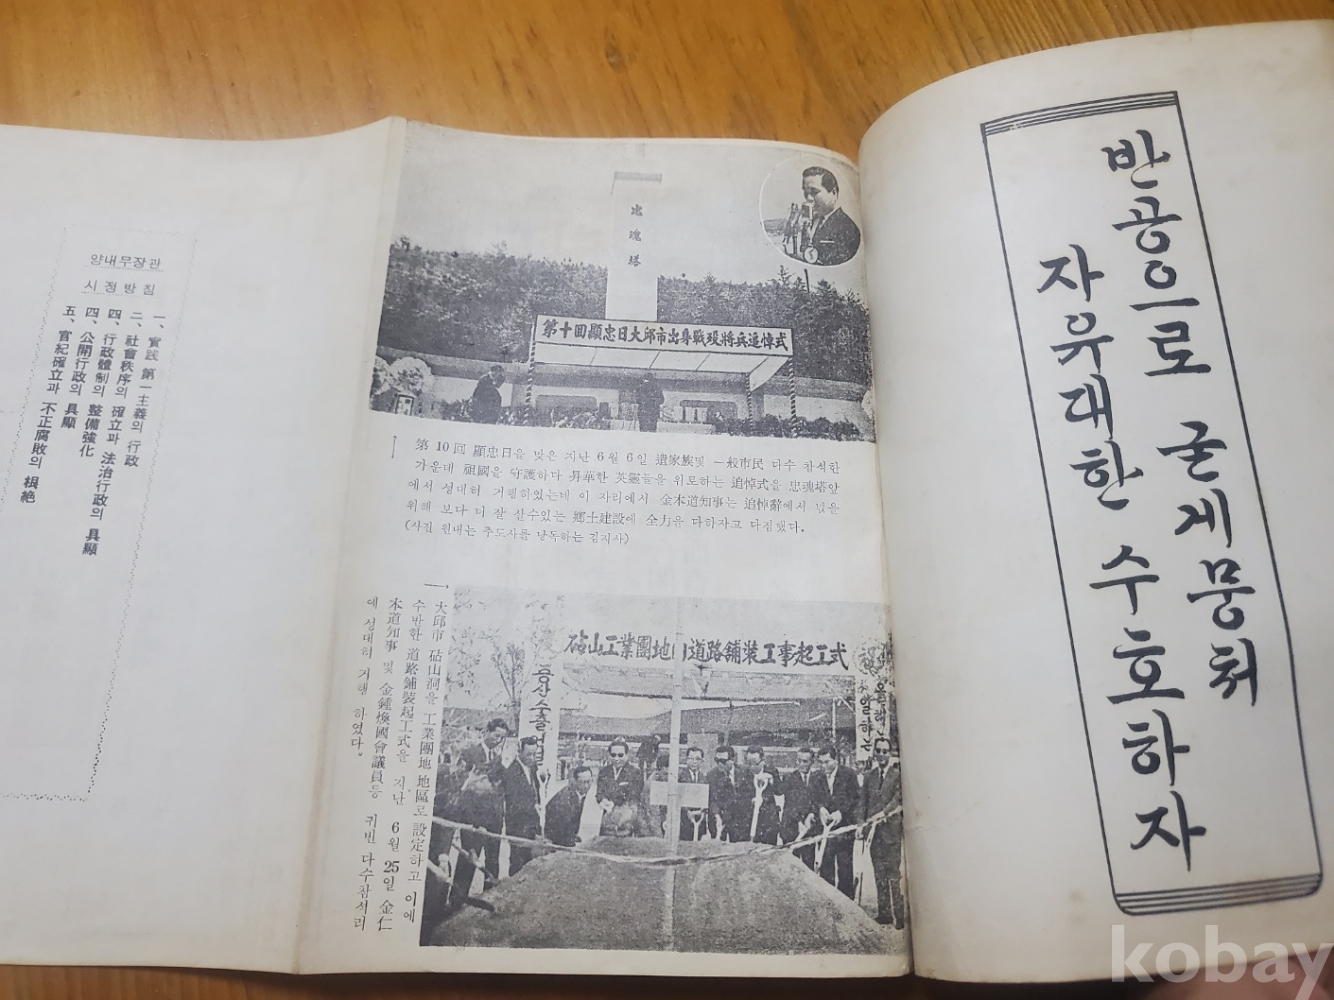 반공으로 굳게뭉쳐
자유대한 수호하자
忠魂塔
第十回顯忠日大邱市出身戰歿將兵追悼式
第10回 顯忠日을 맞은 지난 6월 6일 遺家族및 一般市民 다수 참석한
가운데 祖國을 守護하다 昇華한 英靈들을 위로하는 追悼式을 忠魂塔앞
에서 성대히 거행히었는데 이 자리에서 金木道知事는 追悼辭에서 넋을
위해 보다 더 잘 살수있는 鄕土建設에 全力을 다하자고 다짐했다.
(사진 원내는 추도사를 낭독하는 김지사)
砧山工業團地內道路鋪裝工事起工式
증산수출
大邱市 砧山洞을 工業團地 地區로 設定하고 이에
수반한 道路鋪裝起工式을 지난 6월 25일 金仁
本道知事 및 金鍾煥國會議員等 귀빈 다수참석리
에 성대히 거행 하였다.
양내무장관
시정방침
一、實践 第一主義의 行政
二、社會秩序의 確立과 法治行政의 具顯
四、行政體制의 整備強化
四、公開行政의 具顯
五、官紀確立과 不正腐敗의 根絶
kobay